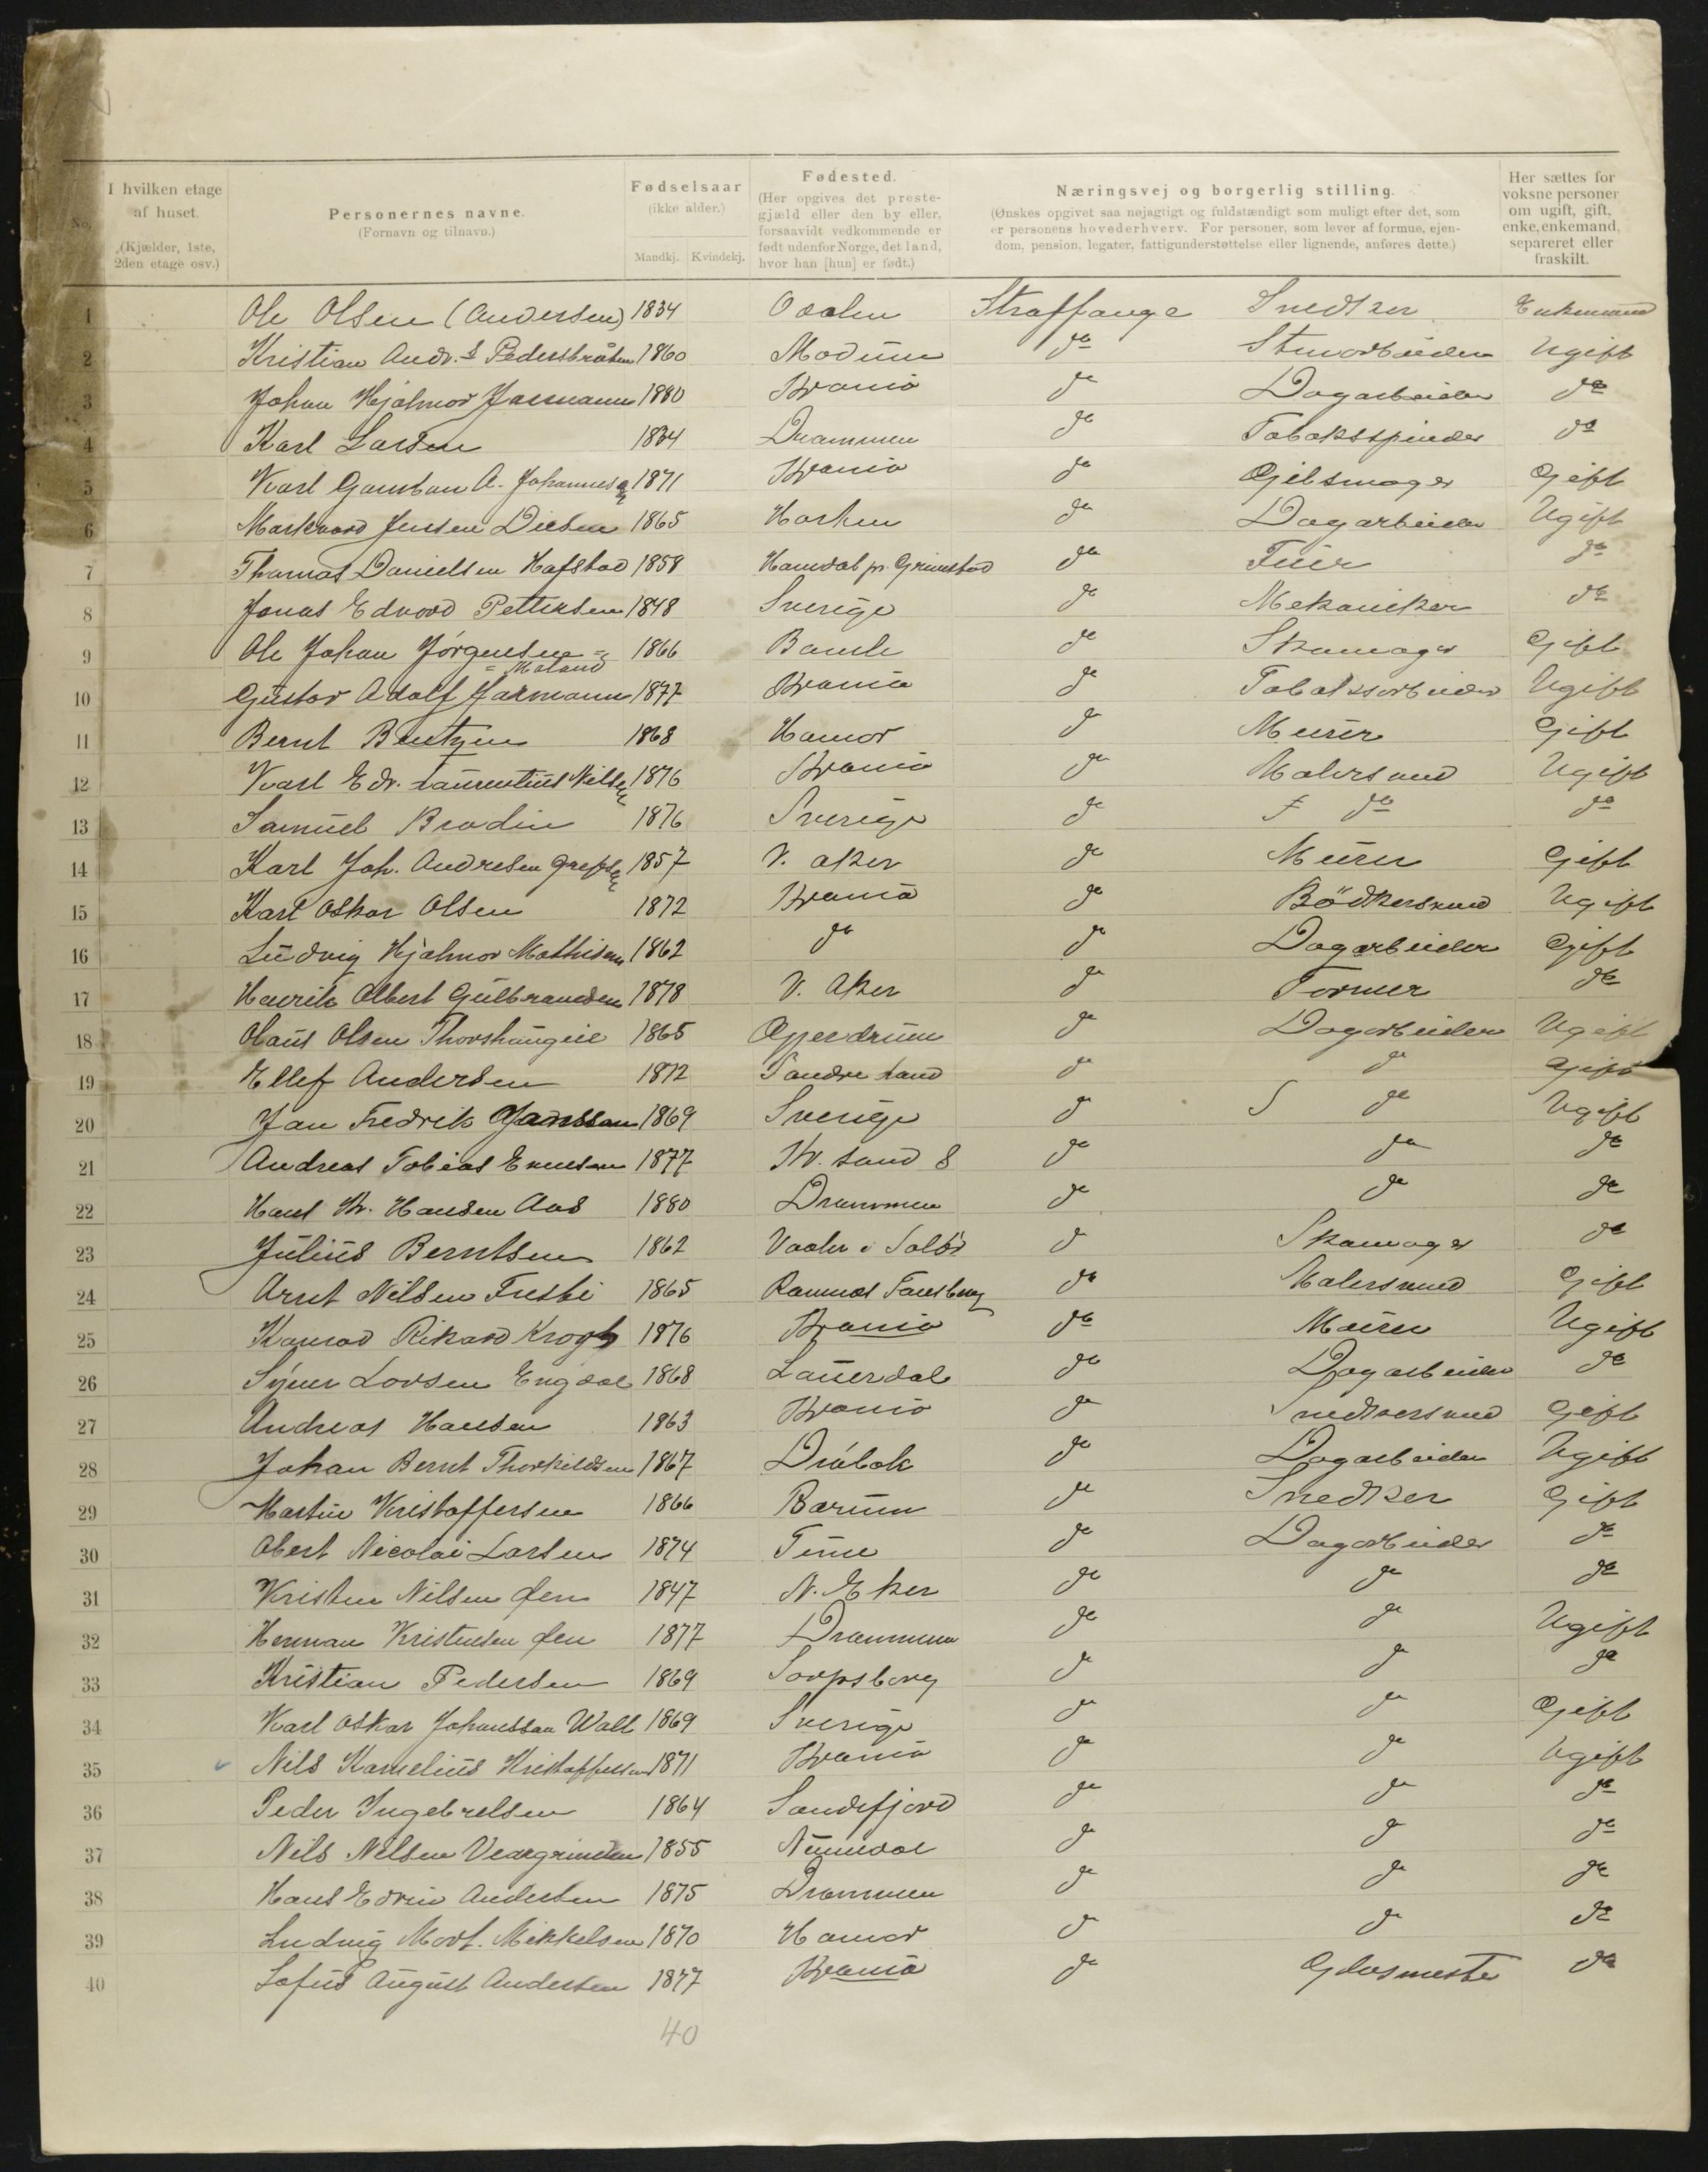 I hvilken etage af huset. (Kjælder, 1ste, 2den etage osv.)
No.
Personernes navne. (Fornavn og tilnavn.)
Fødselsaar (ikke alder.) Mandkj. Kvindekj.
Fødested. (Her opgives det prestegjæld eller den by eller, forsaavidt vedkommende er født udenfor Norge, det land, hvor han [hun] er født.)
Næringsvej og borgerlig stilling. (Ønskes opgivet saa nøjagtigt og fuldstændigt som muligt efter det, som er personens hovederhverv. For personer, som lever af formue, ejendom, pension, legater, fattigunderstøttelse eller lignende, anføres dette.)
Her sættes for voksne personer om ugift, gift, enke, enkemand, separeret eller fraskilt.
1 Ole Olsen (Andersen) 1834 Straffange Snedker Enkemand
2 Kristian Andr. Pedersbråten 1860 Modum do Ugift
3 Johan Hjalmar 1880 Krania do Dagarbeider do
4 Karl Larsen 1834 Drammen do Tobaksspinder do
5 Karl A. Johannesen 1871 Krania do Gjift
6 Jensen 1865 do Dagarbeider Ugift
7 Thomas Danielsen Hafstad 1858 pr. Grimstad do do
8 Jonas Edvard Pettersen 1848 Sverige do Mekaniker do
9 Ole Johan Jørgensen = = Moland 1866 Bamle do Skomager Gift
10 Gustav Adolf Jarmann 1877 Krania do Tobaksarbeider Ugift
11 Bernt Bentzen 1868 Hamar do Murer Gift
12 Karl Edv. Laurentius Nilsen 1876 Krania do Malersvend Ugift
13 Samuel Brodin 1876 Sverige do do do
14 Karl Joh. Andresen 1857 V. Aker do Murer Gift
15 Karl Oskar Olsen 1872 Krania do Bödkersvend Ugift
16 Ludvig Hjalmar Mathisen 1862 do do Dagarbeider Gjift
17 Henrik Albert Gulbrandsen 1878 V. Aker do Former do
18 Olaus Olsen Thorshaugeie 1865 do Dagarbeider Ugift
19 Ellef Andersen 1872 Søndre Land do do Gift
20 Jan Fredrik Jansson 1869 Sverige do do Ugift
21 Andreas Tobias 1877 Kr. sand S do do do
22 Hans Kr. Hansen Aas 1880 Drammen do do do
23 Julius Berntsen 1862 Vaaler i Solör do Skomager do
24 Arnt Nilsen 1865 Ramnæs do Malersvend Gift
25 Konrad Rikard Krogh 1876 Krania do Murer Ugift
26 Larsen Engdal 1868 do Dagarbeider do
27 Andreas Hansen 1863 Krania do Snedkersvend Gift
28 Johan Bernt Thorkildsen 1867 Dröbak do Dagarbeider Ugift
29 Martin Kristoffersen 1866 Barum do Snedker Gift
30 Albert Nicolai Larsen 1874 do Dagarbeider do
31 Kristen Nilsen 1847 N. Eker do do do
32 Herman Kristensen 1877 Drammen do do Ugift
33 Kristian Pedersen 1869 Sarpsborg do do do
34 Karl Oskar Johansson Wall 1869 Sverige do do Gjift
35 Nils Kornelius Kristoffersen 1871 Krania do do Ugift
36 Peder Ingebretsen 1864 Sandefjord do do do
37 Nils Nilsen 1855 Numedal do do do
38 Hans Edvin Andersen 1875 Drammen do do do
39 Ludvig Mort. Mikkelsen 1870 Hamar do do do
40 Sofus August Andersen 1877 Krania do Glasmester do
40